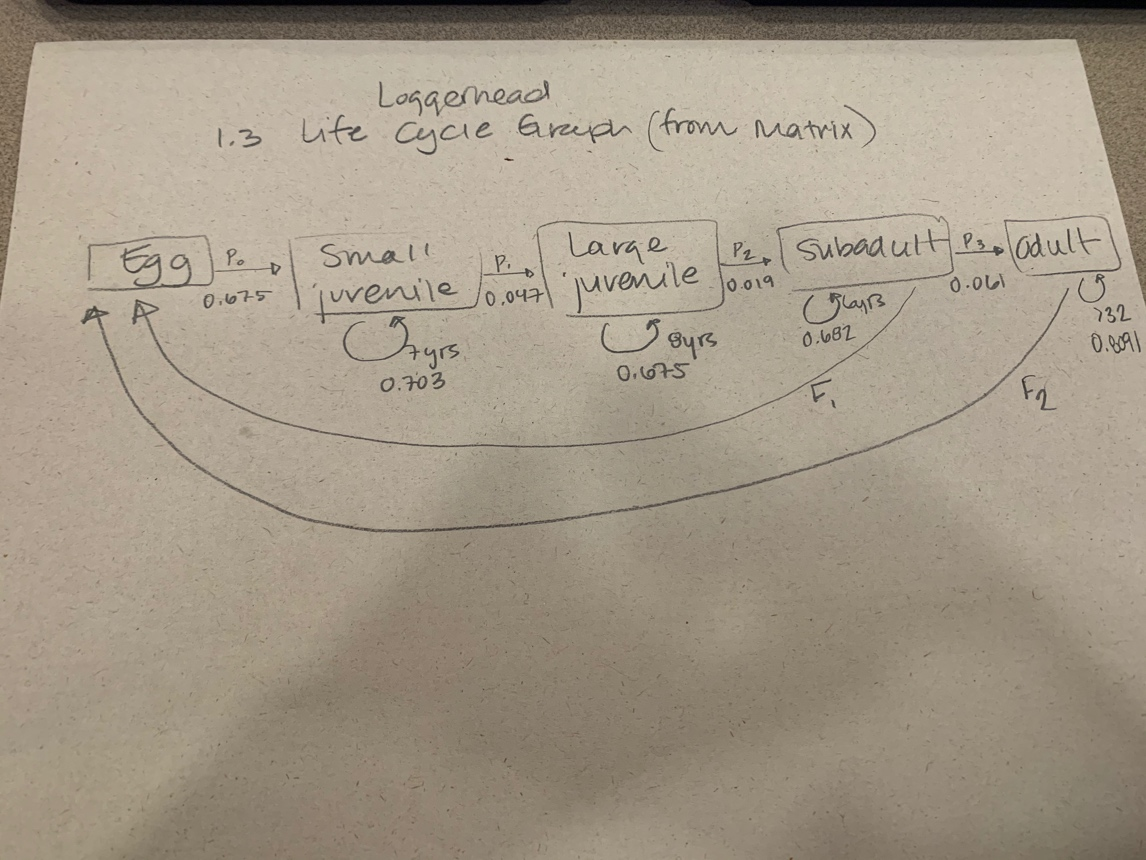 Loggerhead
1.3 Life Cycle Graph (from Matrix)
Egg
P₀
0.675
Small
juvenile
7yrs
0.703
P₁
0.047
Large
juvenile
8yrs
0.675
P₂
0.019
Subadult
6yrs
0.682
P₃
0.061
adult
>32
0.8091
F₁
F₂